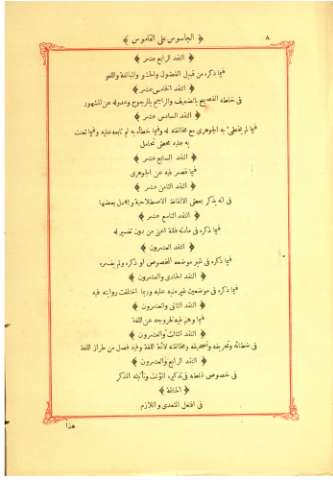 ﴿ الجاسوس على القاموس ﴾ ٨
﴿ النقد الرابع عشر ﴾
فيما ذكره من قبيل الفضول والحشو والمبالغة واللغو
﴿ النقد الخامس عشر ﴾
فى خلطه الفصيح بالضعيف والراجح بالمرجوح وعدوله عن المشهور
﴿ النقد السادس عشر ﴾
فيما لم يخطئ به الجوهرى مع مخالفته له وفيما خطأه به ثم تابعه عليه وفيما تعنت
به عليه محض تحامل
﴿ النقد السابع عشر ﴾
فيما قصر فيه عن الجوهرى
﴿ النقد الثامن عشر ﴾
فى انه يذكر بعض الالفاظ الاصطلاحية ويهمل بعضها
﴿ النقد التاسع عشر ﴾
فيما ذكره فى مادته من دون تفسير له
﴿ النقد العشرون ﴾
فيما ذكره فى غير موضعه المخصوص او ذكره ولم يفسره
﴿ النقد الحادى والعشرون ﴾
فيما ذكره فى موضعين غير منبه عليه وربما اختلفت روايته فيه
﴿ النقد الثانى والعشرون ﴾
فيما وهم فيه لخروجه عن اللغة
﴿ النقد الثالث والعشرون ﴾
فى خطائه وتحريفه وتصحيفه ومخالفته لائمة اللغة وفيه فصل من طراز اللغة
﴿ النقد الرابع والعشرون ﴾
فى خصوص غلطه فى تذكيره المؤنث وتأنيثه المذكر
﴿ الخاتمة ﴾
فى الفعل المتعدى واللازم
هذا